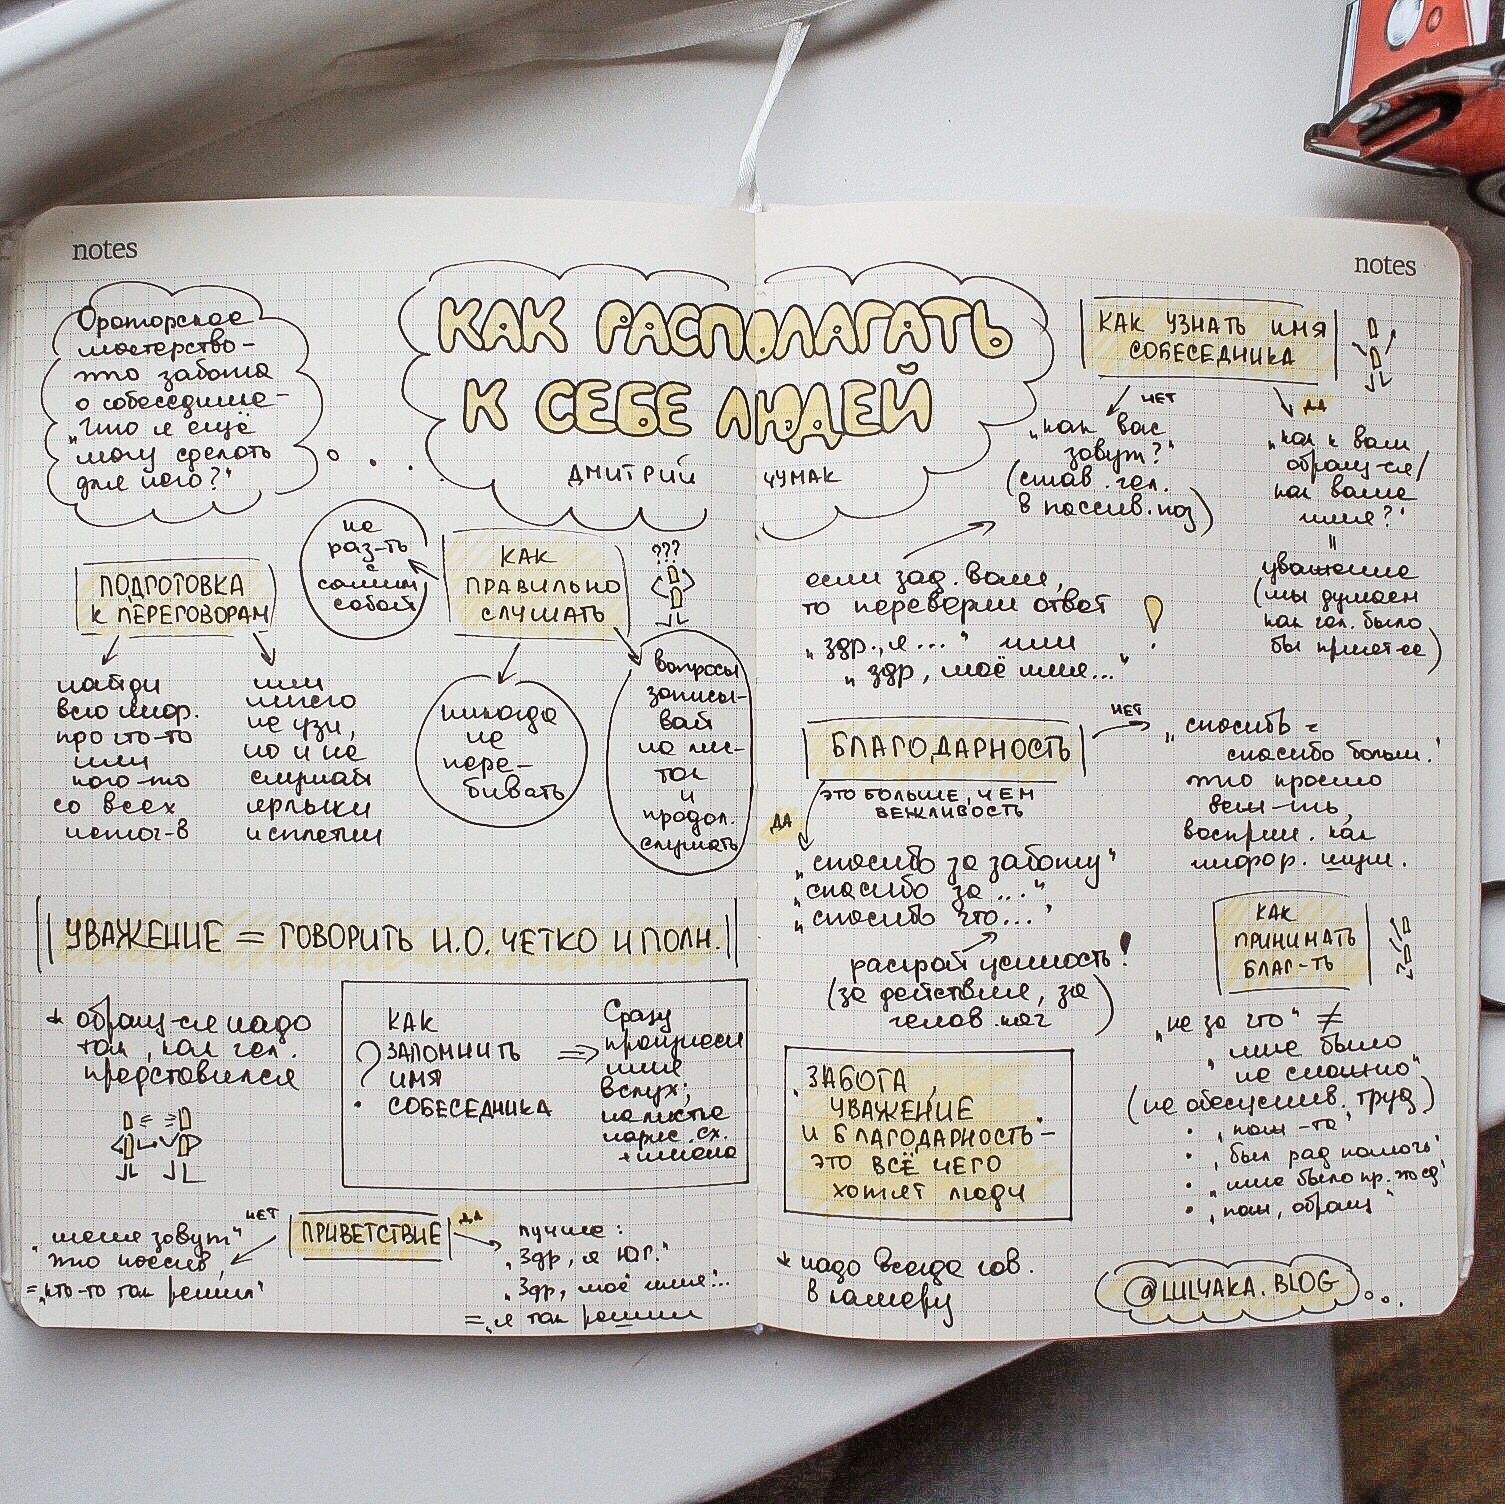 notes
notes
Ораторское
мастерство –
это забота
о собеседнике –
„Что я ещё
могу сделать
для него?"
КАК РАСПОЛАГАТЬ
К СЕБЕ ЛЮДЕЙ
ДМИТРИЙ ЧУМАК
ПОДГОТОВКА
К ПЕРЕГОВОРАМ
найди
всю инф.
про что-то
или
кого-то
со всех
источ-в
или
ничего
не узн,
но и не
слушай
ярлыки
и сплетни
КАК
ПРАВИЛЬНО
СЛУШАТЬ
???
не
раз-ть
с
самим
собой
никогда
не
пере-
бивать
вопросы
записы-
вай
на лис-
ток
и
продол.
слушать
УВАЖЕНИЕ = ГОВОРИТЬ И.О. ЧЕТКО И ПОЛН.
* обращ-ся надо
так, как чел.
представился
КАК
ЗАПОМНИТЬ
ИМЯ
СОБЕСЕДНИКА
?
=>
Сразу
произнеси
имя
вслух;
на листке
нарис. сх.
+ имена
ПРИВЕТСТВИЕ
НЕТ
„меня зовут"
это пассив,
= „кто-то так решил"
ДА
лучше:
„Здр, я Юл."
„Здр, моё имя..."
= „я так решил
КАК УЗНАТЬ ИМЯ
СОБЕСЕДНИКА
НЕТ
„как вас
зовут?"
(став. чел.
в пассив. поз)
ДА
„как к вам
обращ-ся/
как ваше
имя?"
=
уважение
(мы думаем
как чел. было
бы прият-ее)
если зад. вам,
то переверни ответ
„здр., я ..." или
„здр, моё имя..."
!
БЛАГОДАРНОСТЬ
ЭТО БОЛЬШЕ, ЧЕМ
ВЕЖЛИВОСТЬ
НЕТ
„спасибо =
спасибо больш.!
это просто
веж-ть,
восприн. как
инфор. шум.
ДА
„спасибо за заботу"
„спасибо за ..."
„спасибо что..."
раскрой ценность!
(за действия, за
челов. кач)
КАК
ПРИНИМАТЬ
БЛАГ-ТЬ
„не за что" ≠
„мне было
не сложно"
(не обесценив. труд)
• „пож-та"
• „был рад помочь"
• „мне было пр.
• „пож, обращ"
ЗАБОТА,
УВАЖЕНИЕ
И БЛАГОДАРНОСТЬ –
ЭТО ВСЁ ЧЕГО
ХОТЯТ ЛЮДИ
* надо всегда гов.
в камеру
@LULYAKA.BLOG